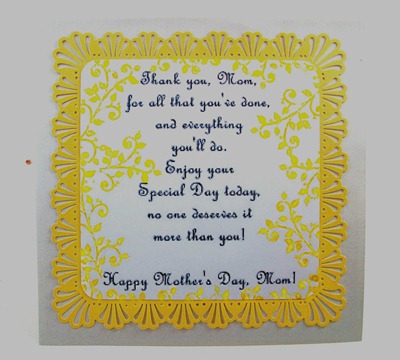 Thank you, Mom,
for all that you've done,
and everything
you'll do.
Enjoy your
Special Day today,
no one deserves it
more than you!
Happy Mother's Day, Mom!